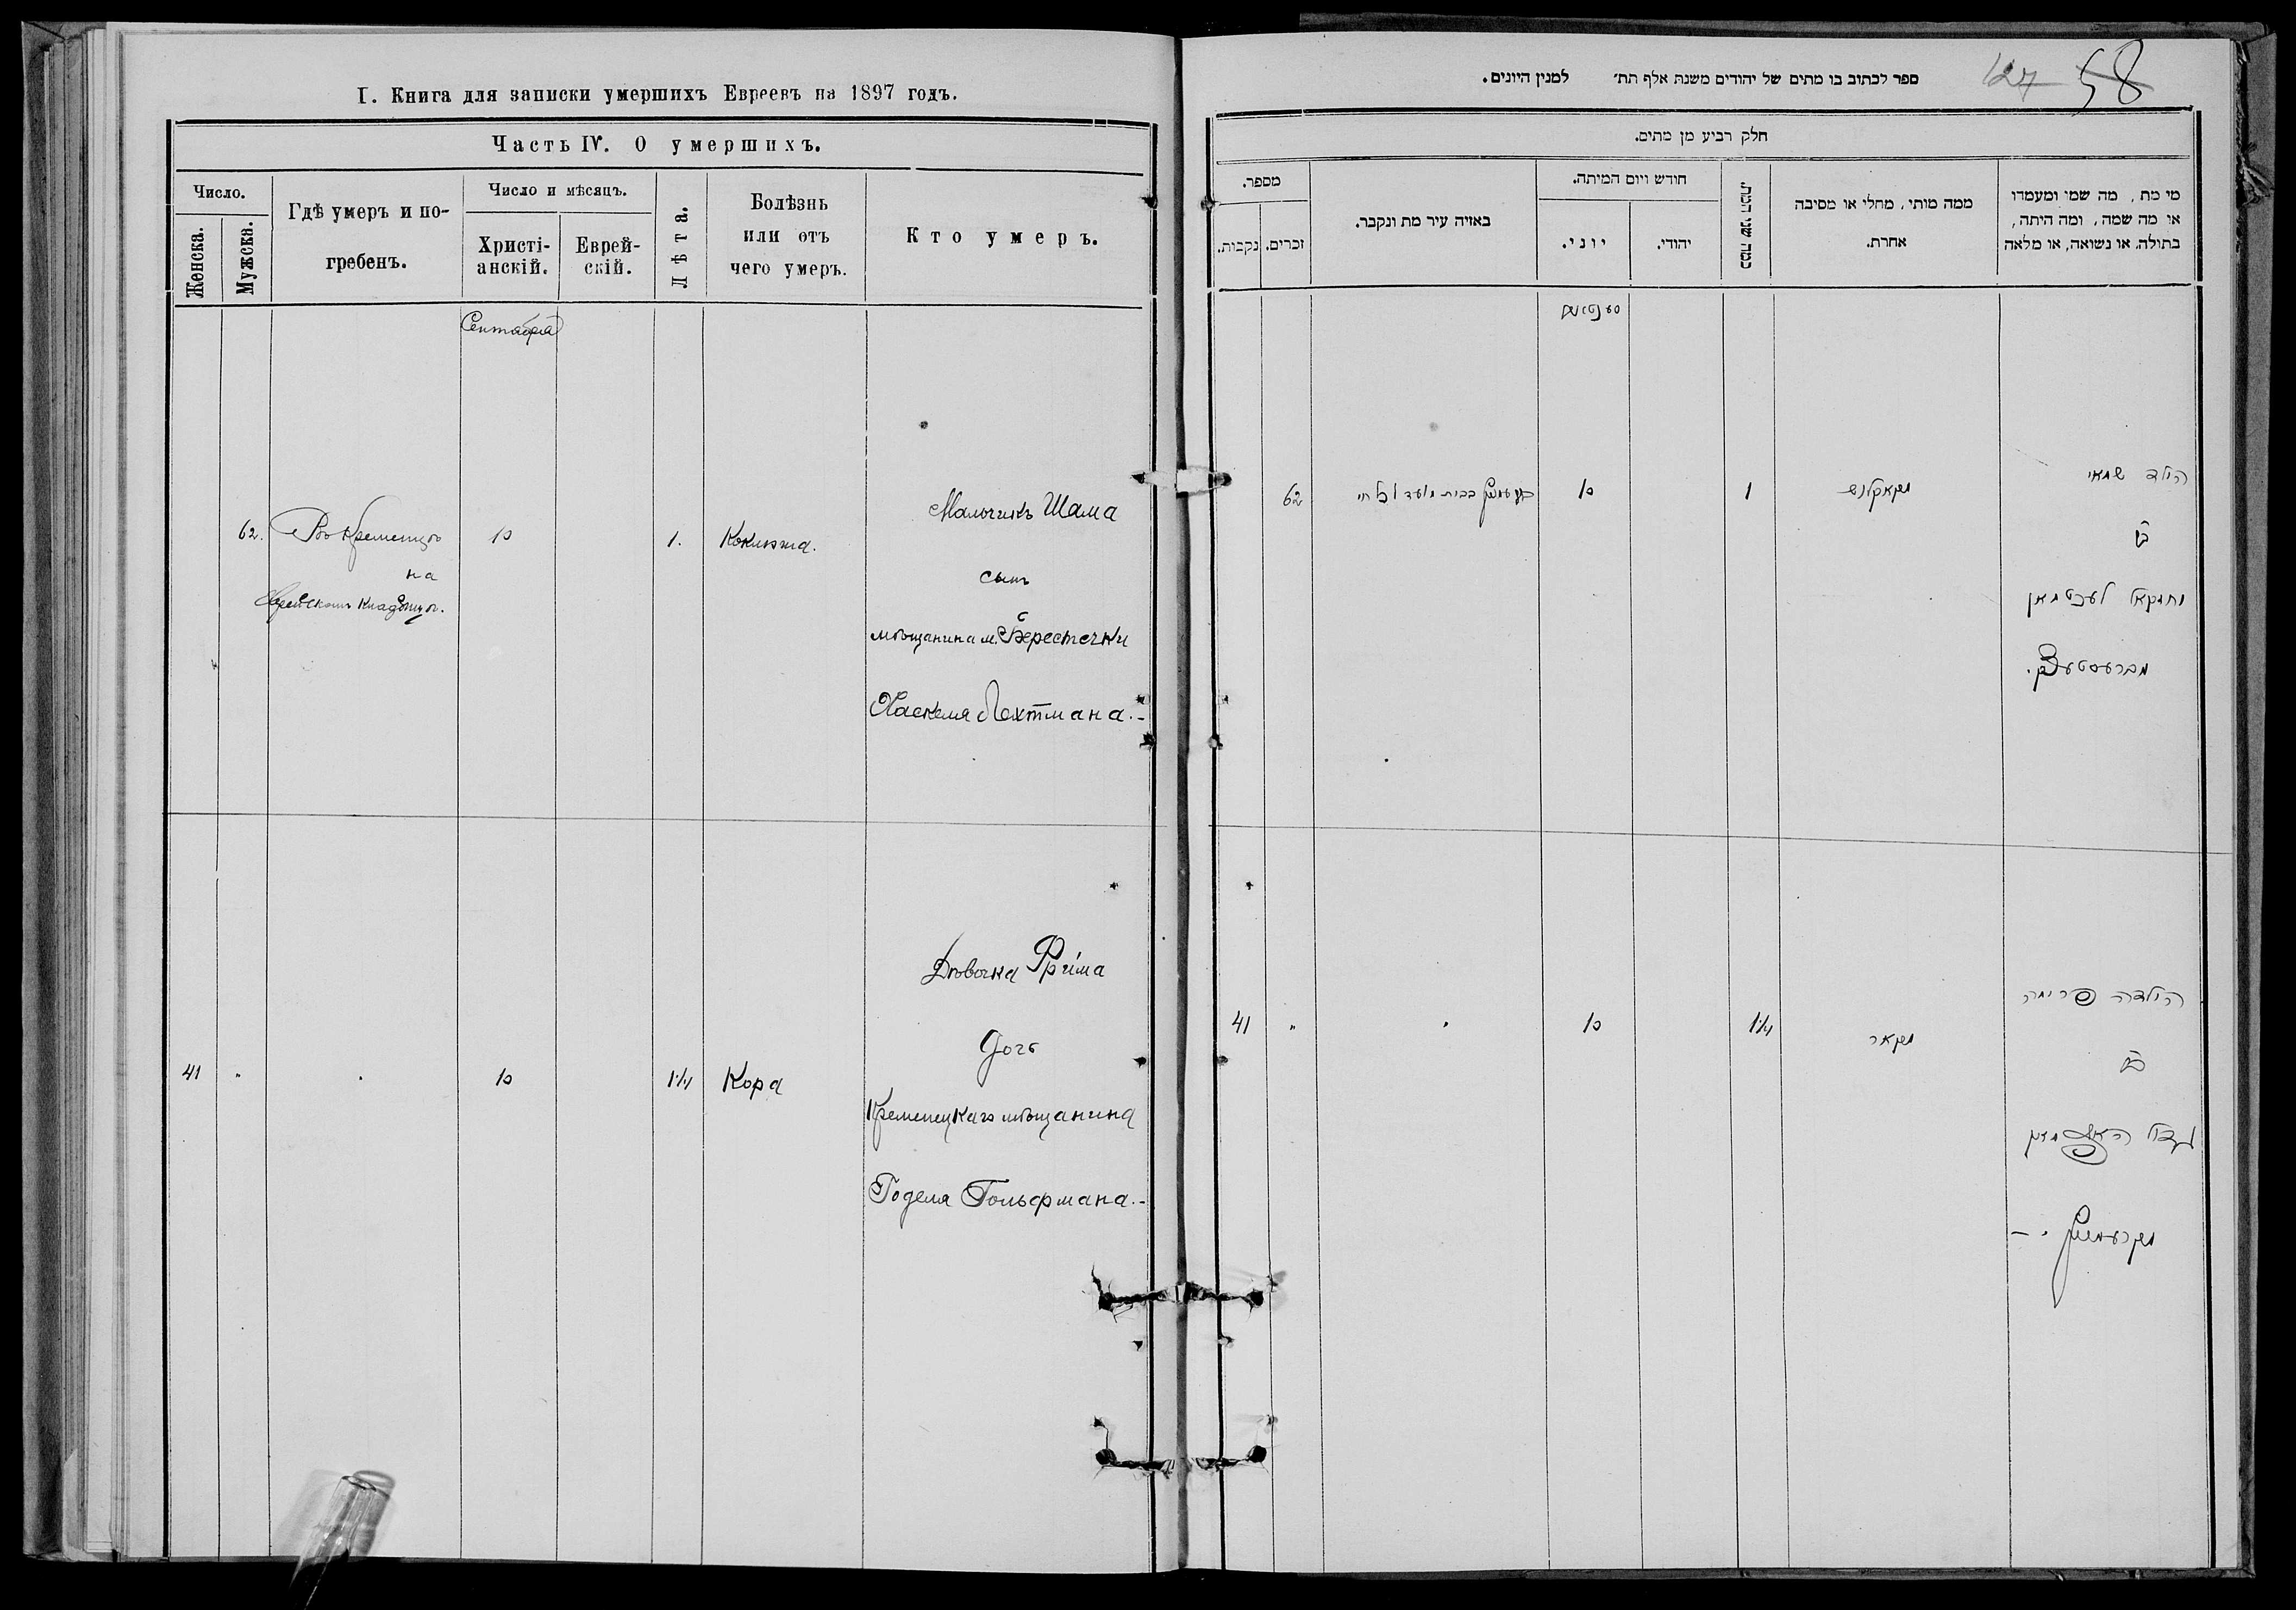 I. Книга для записки умершихъ Евреевъ на 1897 годъ.
Часть IV. О умершихъ.
Число.
Женска.
Мужска.
Гдѣ умеръ и по-
гребенъ.
Число и мѣсяцъ.
Христі-
анскій.
Еврей-
скій.
Лѣта.
Болѣзнь
или отъ
чего умеръ.
Кто умеръ.
Сентября
62.
Въ Кременцѣ
на
Еврейскомъ кладбищѣ.
10
1.
Коклюша.
Мальчикъ Шама
сынъ
мѣщанина м. Берестечки
Хаскеля Лехтмана.-
41
"
"
10
1 1/4
Кора
Дѣвочка Фрима
дочь
Кременецкаго мѣщанина
Годеля Гольфмана.-
ספר לכתוב בו מתים של יהודים משנת אלף תת׳ למנין היונים.
127 58
חלק רביע מן מתים.
מי מת, מה שמו ומעמדו
או מה שמה, ומה היתה,
בתולה, או נשואה, או מלאה
ממה מותו, מחלי או מסיבה
אחרת.
כמה שני המת.
חודש ויום המיתה.
יהודי.
יוני.
באיזה עיר מת ונקבר.
מספר.
זכרים.
נקבות.
הילד שמאי
בן
יחזקאל לעכטמאן
מברעסטעצק.
1
10
62
הילדה פרימה
בת
מקרעמניץ. -
מקאר
1 1/4
10
"
"
41